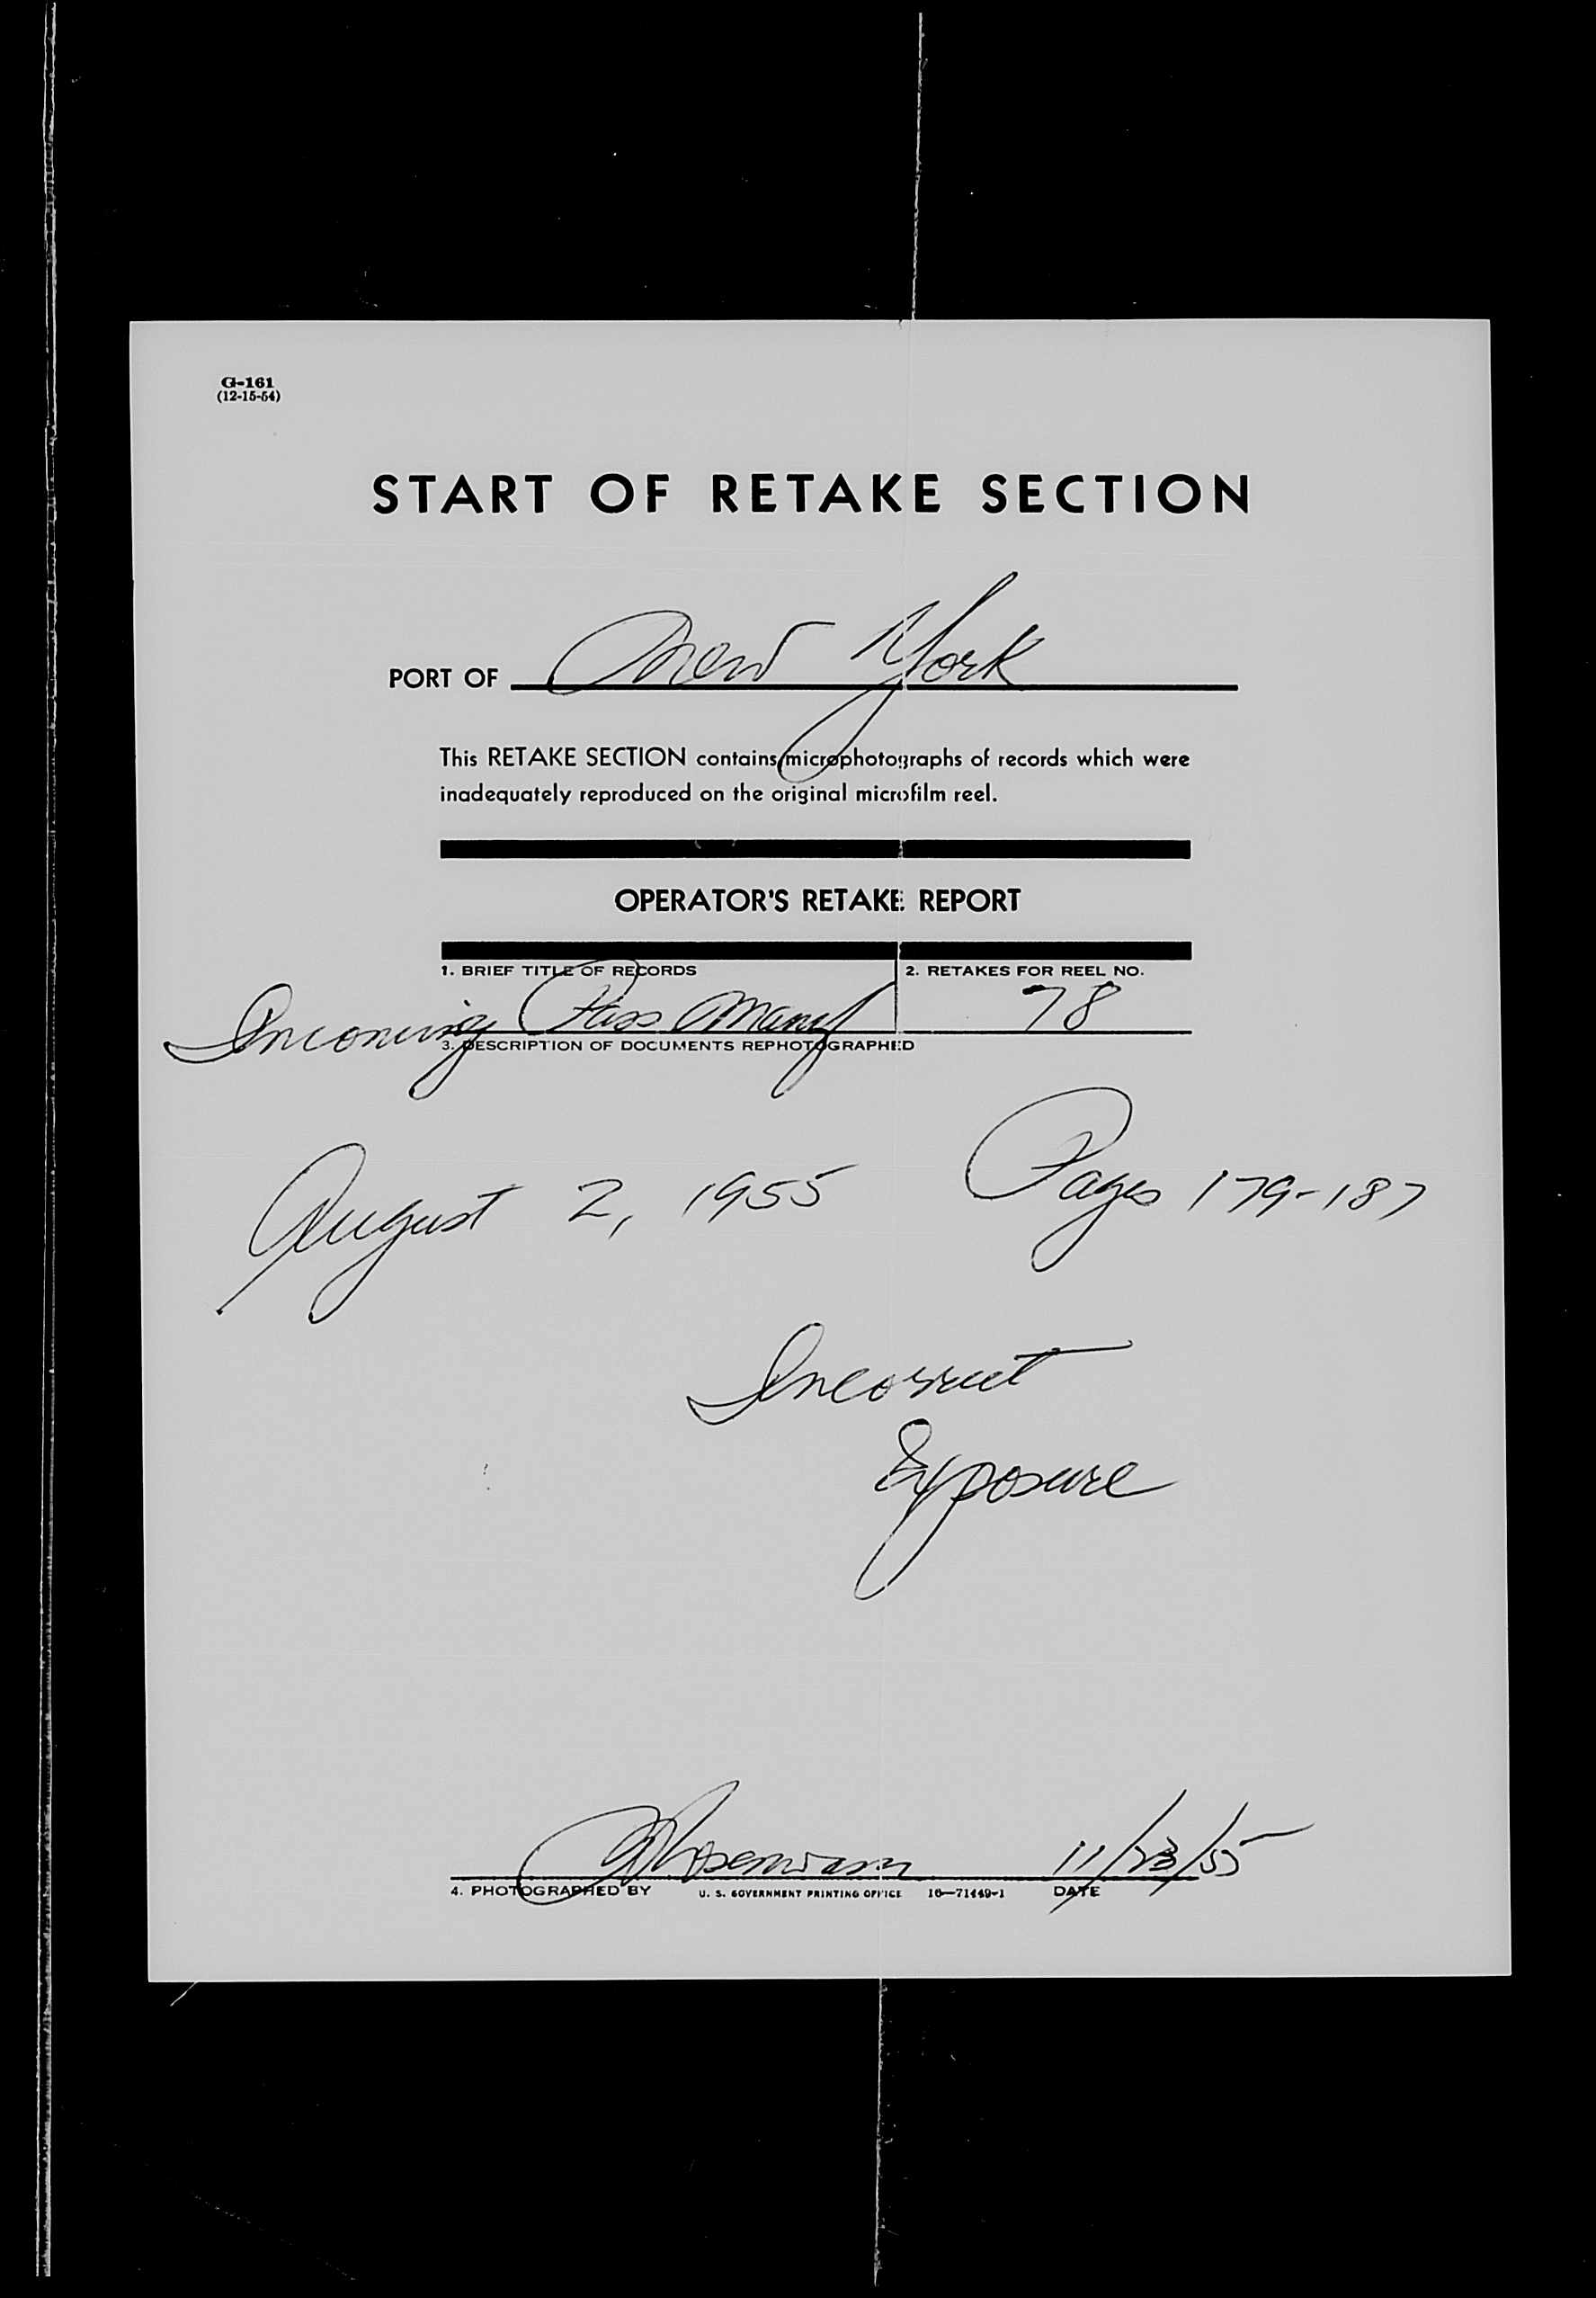 G-161
(12-15-54)
START OF RETAKE SECTION
PORT OF New York
This RETAKE SECTION contains microphotographs of records which were
inadequately reproduced on the original microfilm reel.
OPERATOR'S RETAKE REPORT
1. BRIEF TITLE OF RECORDS 2. RETAKES FOR REEL NO.
Incoming Pass Manf 78
3. DESCRIPTION OF DOCUMENTS REPHOTOGRAPHED
August 2, 1955 Pages 179-187
Incorrect
Exposure
11/23/55
4. PHOTOGRAPHED BY U. S. GOVERNMENT PRINTING OFFICE 16—71449-1 DATE